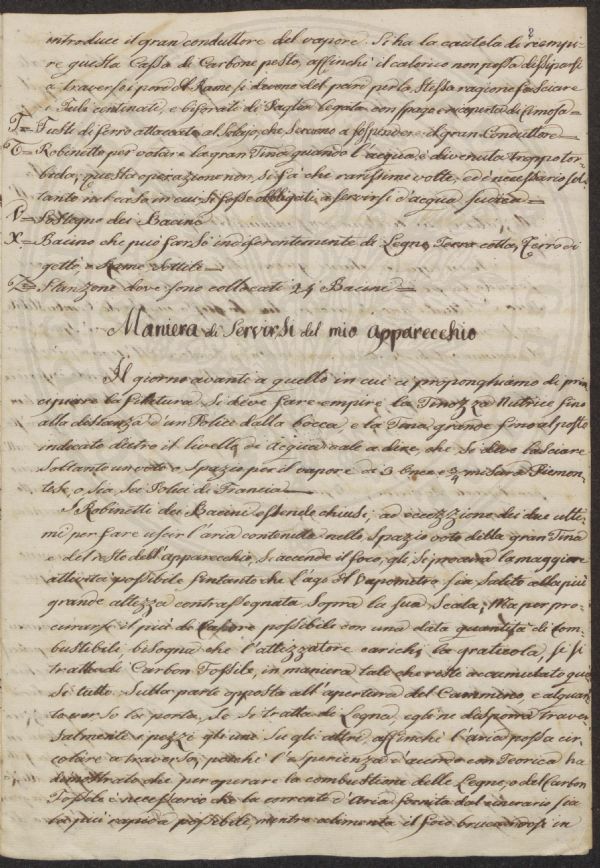 2
introduce il gran conduttore del vapore. Si ha la cautela di riempi=
re questa Cassa di Carbone pesto, affinchè il calorico non possa dissiparsi
a traverso i pori del Rame, si devono del pari per la stessa ragione fasciare
i Tubi continati, e biforati di Paglia legata con spago e ricoperta di Cimosa=
T= Fusti di ferro attaccati al Solajo, che servono a sospendere il gran Conduttore=
V= Robinetto per votare la gran Tina quando l'acqua è divenuta troppo tor=
beda; questa operazione non si fà che rarissime volte, ed è necessario sol=
tanto nel caso in cui si fosse obbligati a servirsi d'acqua sudicia=
Sostegno dei Bacini
X= Bacino che può farsi indiferentemente di Legno, Terra cotta, Ferro di
getto, o Rame sottile=
Z= Stanzone dove sono collocati 24 Bacini=
Maniera di Servirsi del mio apparecchio
Il giorno avanti a quello in cui ci proponghiamo di prin
cipiare la filatura si deve fare empire la Tinozza Nutrice fino
alla distanza d'un Police dalla bocca, e la Tina grande fino al posto
indicato dietro il livello di acqua vale a dire, che si deve lasciare
soltanto un voto o spazio per il vapore di 3 Once e 3/4 misura Piemon=
tese, o sia sei Polici di Francia
I Robinetti dei Bacini essendo chiusi, ad eccezzione dei due ulti=
mi per fare uscir l'aria contenuta nello spazio voto della gran Tina
e del resto dell'apparecchio, si accende il foco, gli si procura la maggiore
attività possibile fintanto che l'ago del Vapometro sia salito alla più
grande altezza contrassegnata sopra la sua Scala; Ma per pro=
curarsi il più di Calore possibile con una data quantità di Com=
bustibili, bisogna che l'attizzatore carichi la graticola, se si
tratta di Carbon Fossile, in maniera tale che resti accumulato qua
si tutto sulla parte opposta all'apertura del Cammino, e alquan
to verso la porta, se si tratta di Legna, egli ne disporrà traver
salmente i pezzi gli uni sugli altri, affinchè l'aria possa cir=
colare a traverso, perchè l'esperienza d'acordo con Teorica ha
dimostrato che per operare la combustione delle Legne, o del Carbon
Fossile è necessario che la corrente d'Aria fornita dal cinerario sia
la più rapida possibile, mentre alimenta il foco bruciandosi in